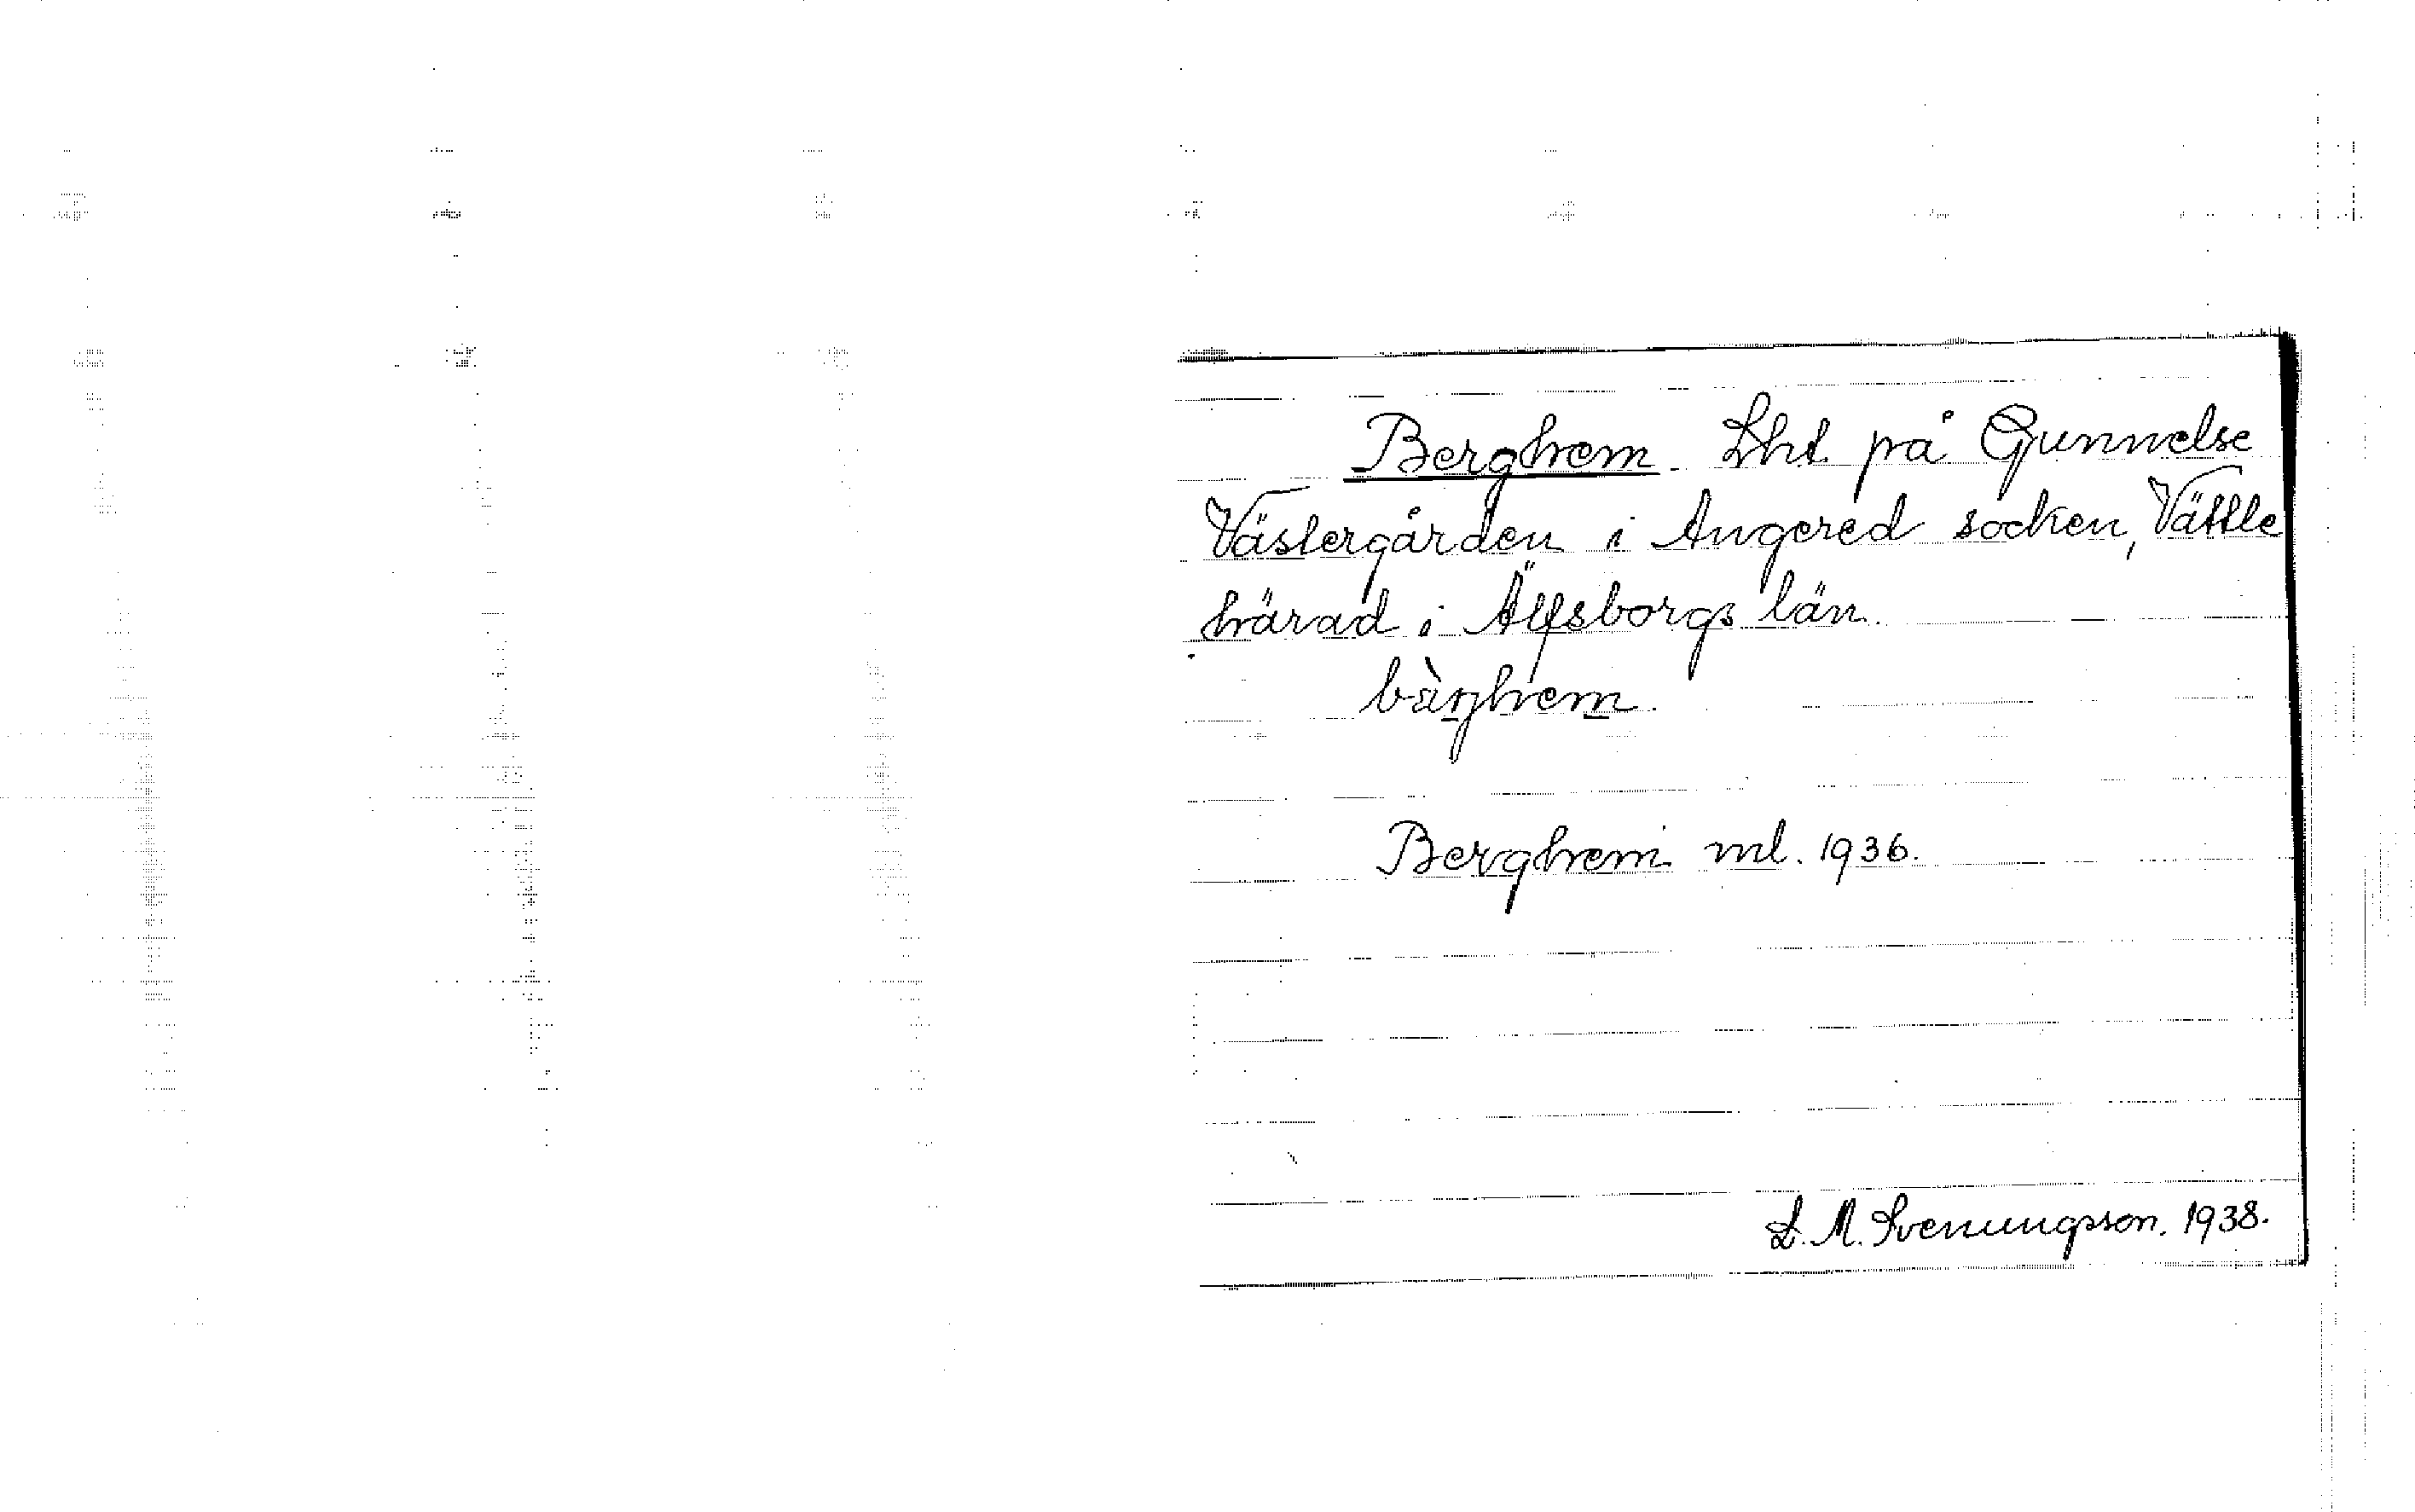 Berghem. Lht på Gunnelse
Västergården i Angered socken, Vättle
härad i Älfsborgs län.
bärjhem.
Berghem ml. 1936.
L. M. Svenungsson. 1938.